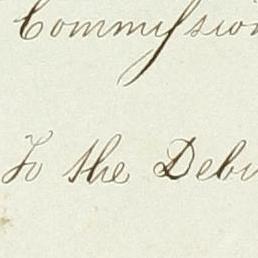 Commission
To the Debi